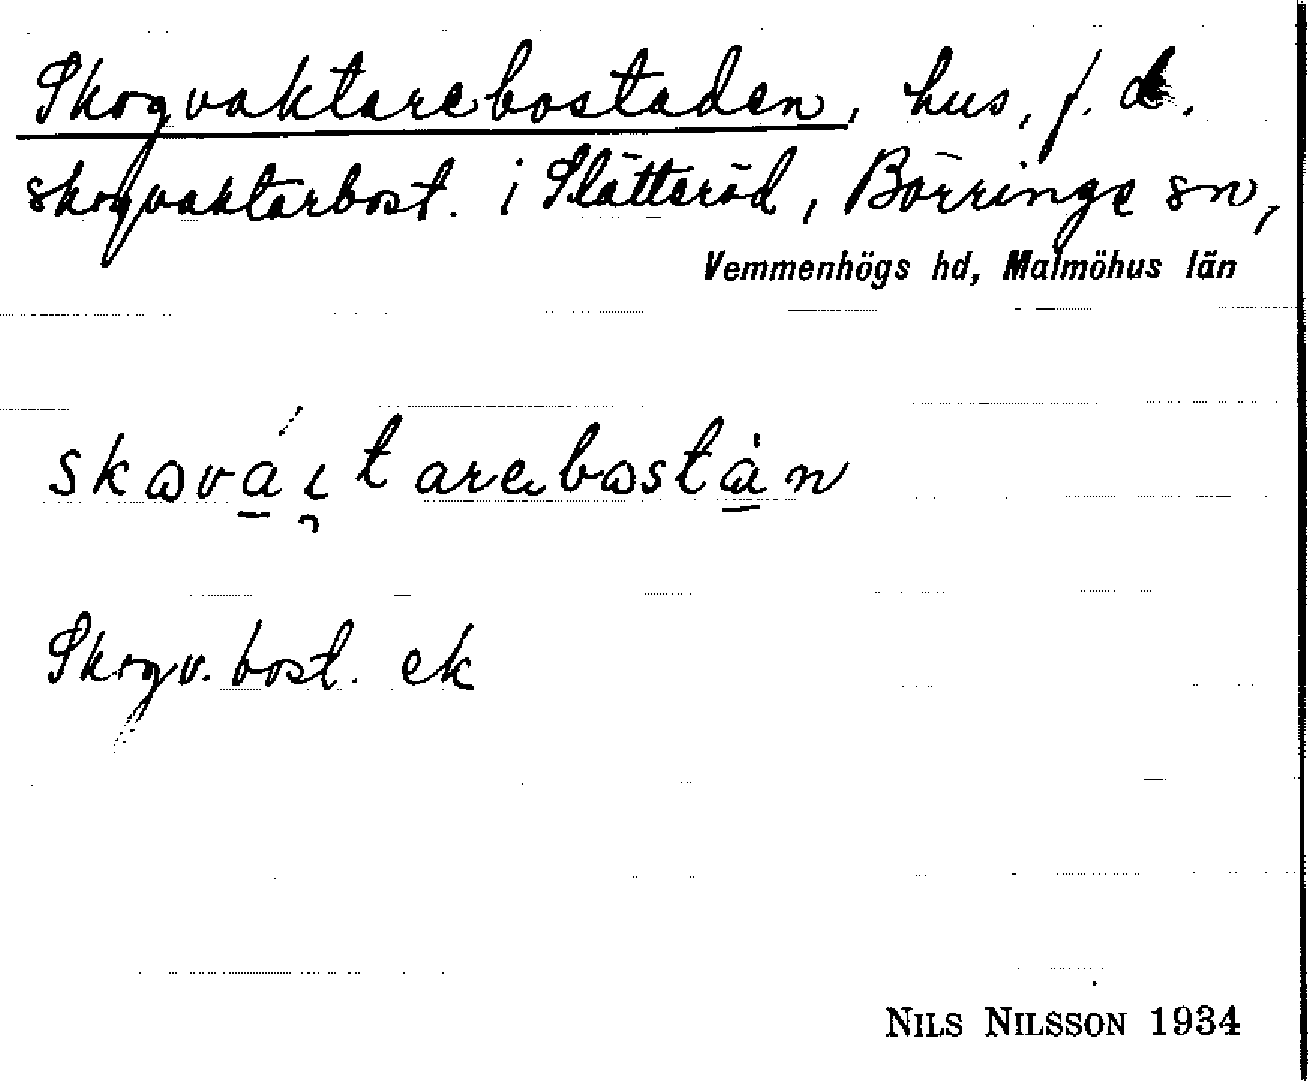 Skogvaktarebostaden, hus, f. d.
skogvaktarbost. i Slätteröd, Börringe sn,
Vemmenhögs hd, Malmöhus län
Skogv. bost. ek
NILS NILSSON 1934